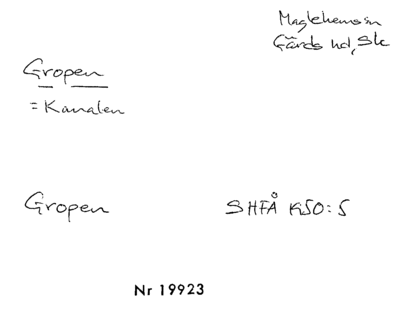 Maglehems sn
Gärds hd, Sk
Gropen
= Kanalen
Gropen SHFÅ K50:5
Nr 19923